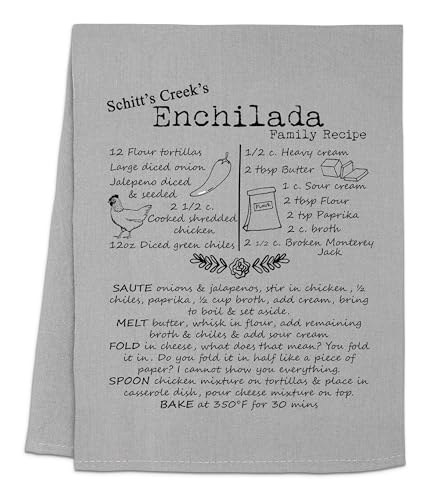 Schitt's Creek's
Enchilada
Family Recipe
12 Flour tortillas
Large diced onion
Jalepeno diced
& seeded
2 1/2 c.
Cooked shredded
chicken
12oz Diced green chiles
1/2 c. Heavy cream
2 tbsp Butter
1 c. Sour cream
FLOUR
2 tbsp Flour
2 tsp Paprika
2 c. broth
2 1/2 c. Broken Monterey
Jack
SAUTE onions & jalapenos, stir in chicken, ½
chiles, paprika, ½ cup broth, add cream, bring
to boil & set aside.
MELT butter, whisk in flour, add remaining
broth & chiles & add sour cream.
FOLD in cheese, what does that mean? You fold
it in. Do you fold it in half like a piece of
paper? I cannot show you everything.
SPOON chicken mixture on tortillas & place in
casserole dish, pour cheese mixture on top.
BAKE at 350°F for 30 mins